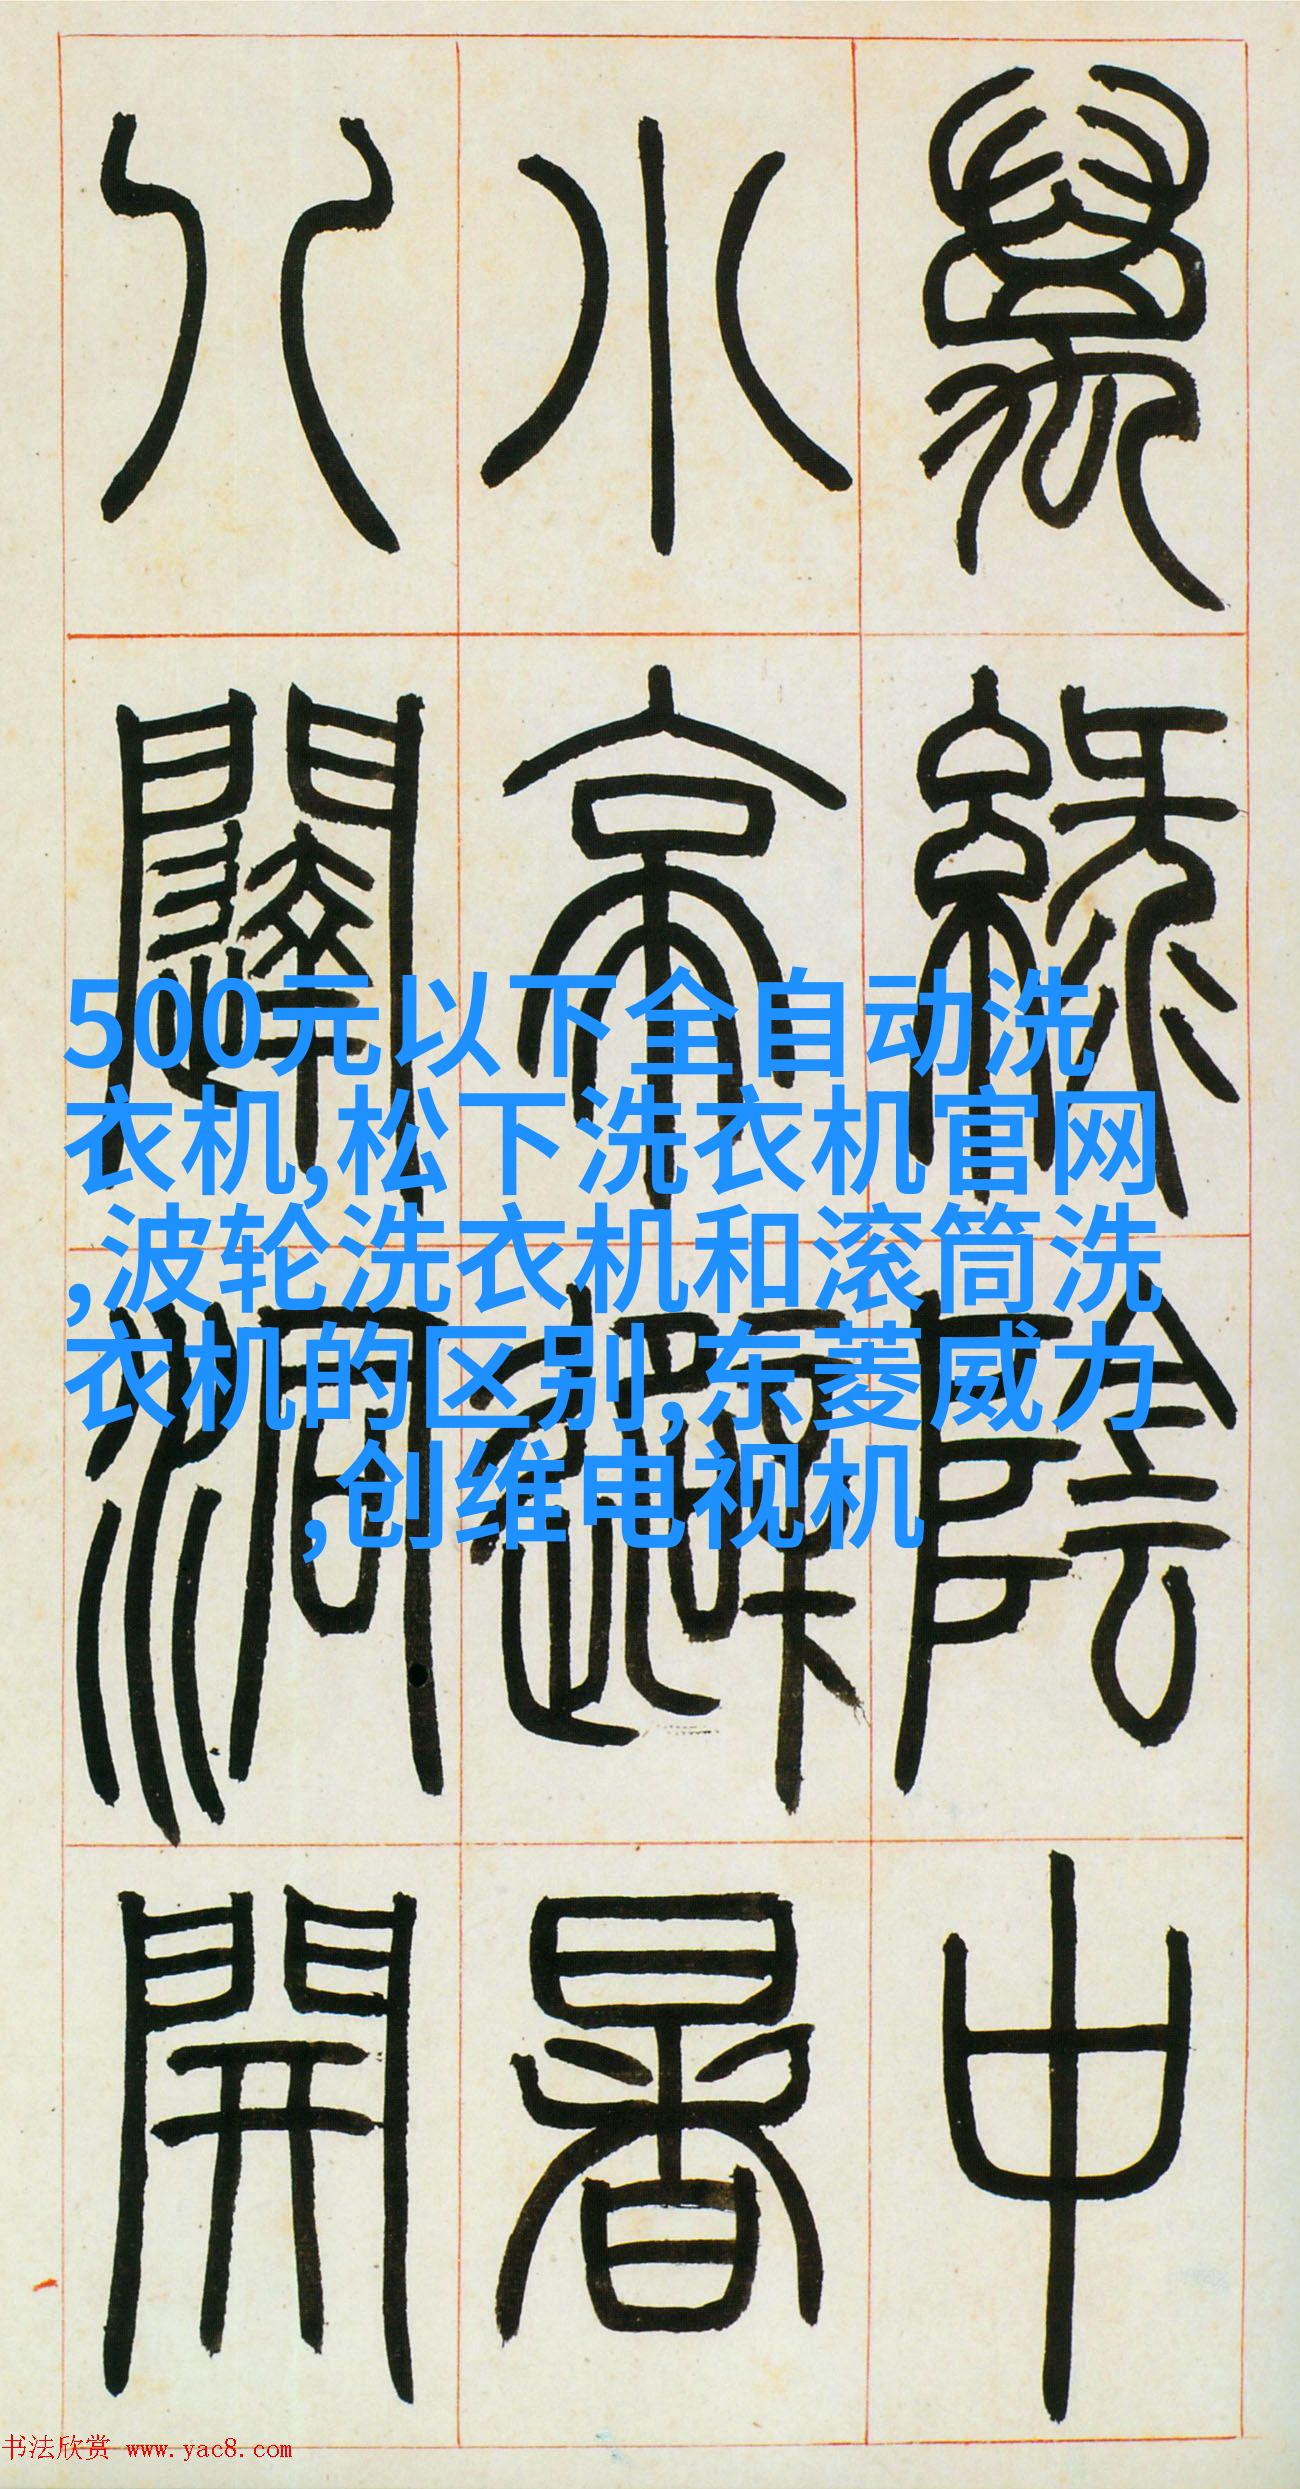 萬綠陰中
小亭避暑
八闥洞開
500元以下全自动洗
衣机,松下洗衣机官网
,波轮洗衣机和滚筒洗
衣机的区别,东菱威力
,创维电视机
书法欣赏 www.yac8.com